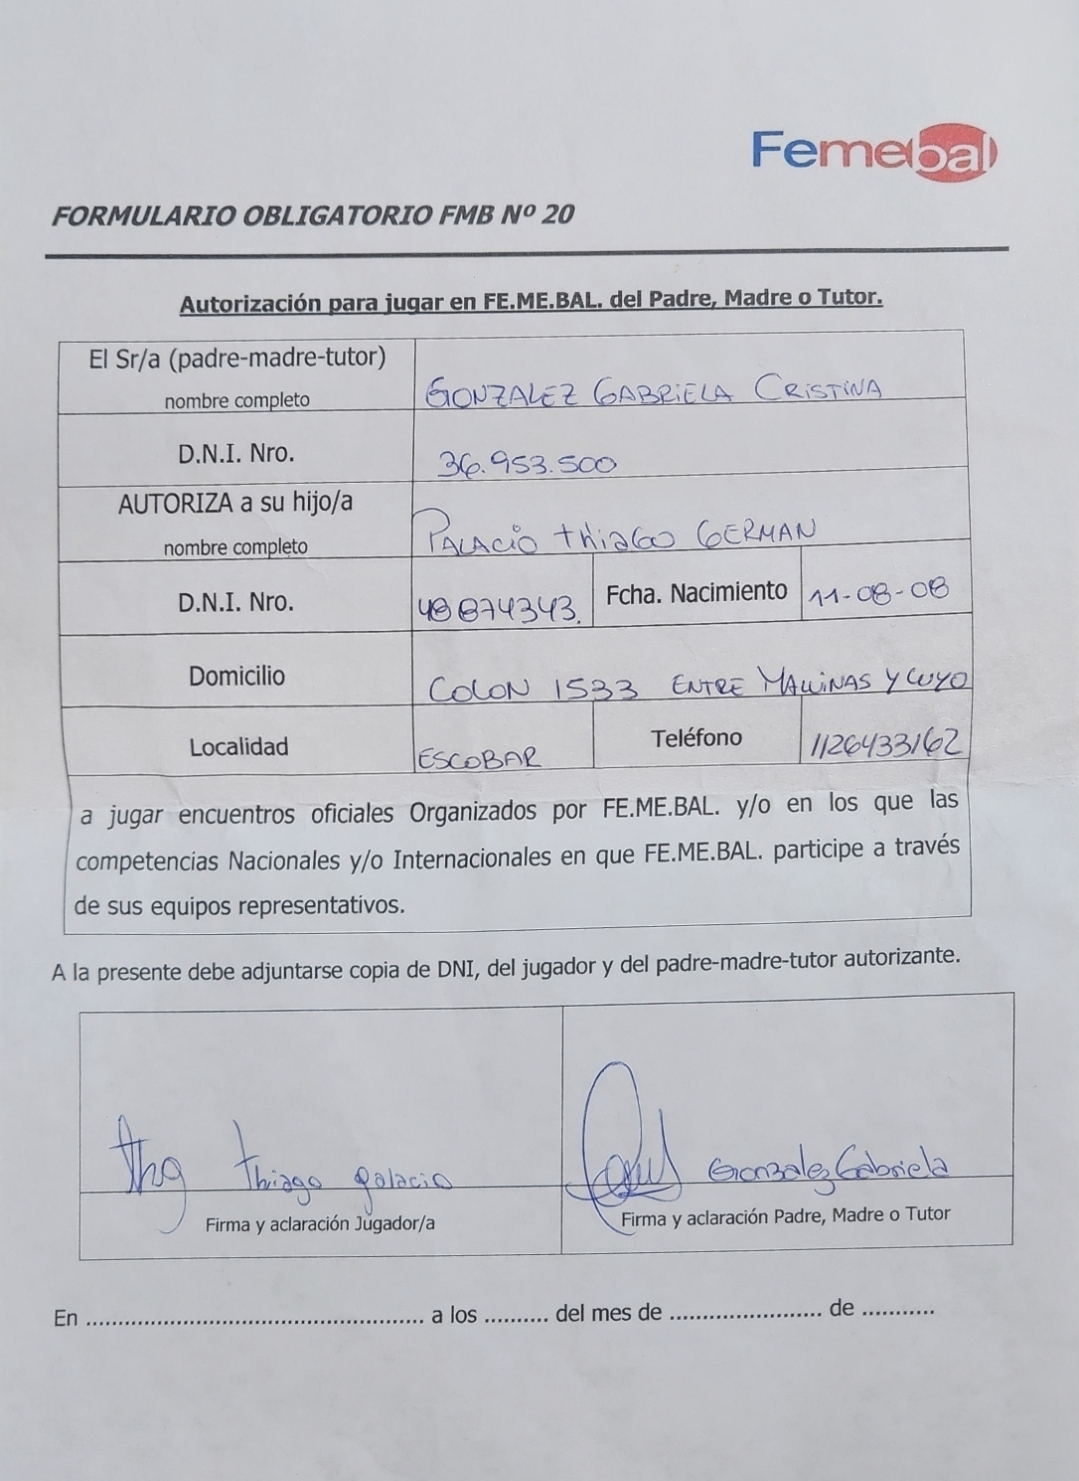 Femebal
FORMULARIO OBLIGATORIO FMB Nº 20
Autorización para jugar en FE.ME.BAL. del Padre, Madre o Tutor.
El Sr/a (padre-madre-tutor)
nombre completo
GONZALEZ GABRIELA CRISTINA
D.N.I. Nro.
36.953.500
AUTORIZA a su hijo/a
nombre completo
PALACIO thiaGo GERMAN
D.N.I. Nro.
48874343.
Fcha. Nacimiento
11-08-08
Domicilio
COLON 1533 ENTRE MALVINAS Y CUYO
Localidad
ESCOBAR
Teléfono
1126433162
a jugar encuentros oficiales Organizados por FE.ME.BAL. y/o en los que las
competencias Nacionales y/o Internacionales en que FE.ME.BAL. participe a través
de sus equipos representativos.
A la presente debe adjuntarse copia de DNI, del jugador y del padre-madre-tutor autorizante.
thg thiago palacio
Firma y aclaración Jugador/a
Gonzalez Gabriela
Firma y aclaración Padre, Madre o Tutor
En .................................................... a los .......... del mes de ....................... de ...........